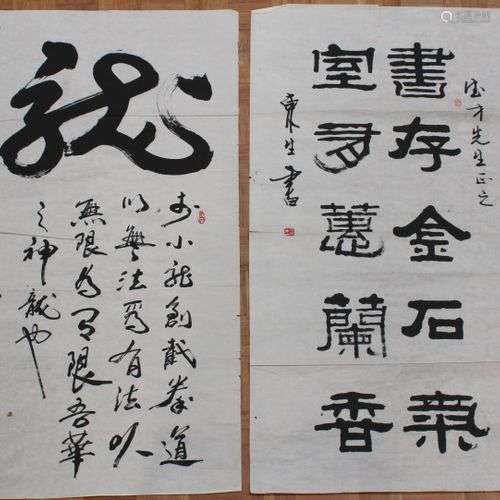 先生正之
書存金石氣
室有蕙蘭香
東生書
龍
李小龍創截拳道
以無法為有法以
無限為有限吾華
之神龍也